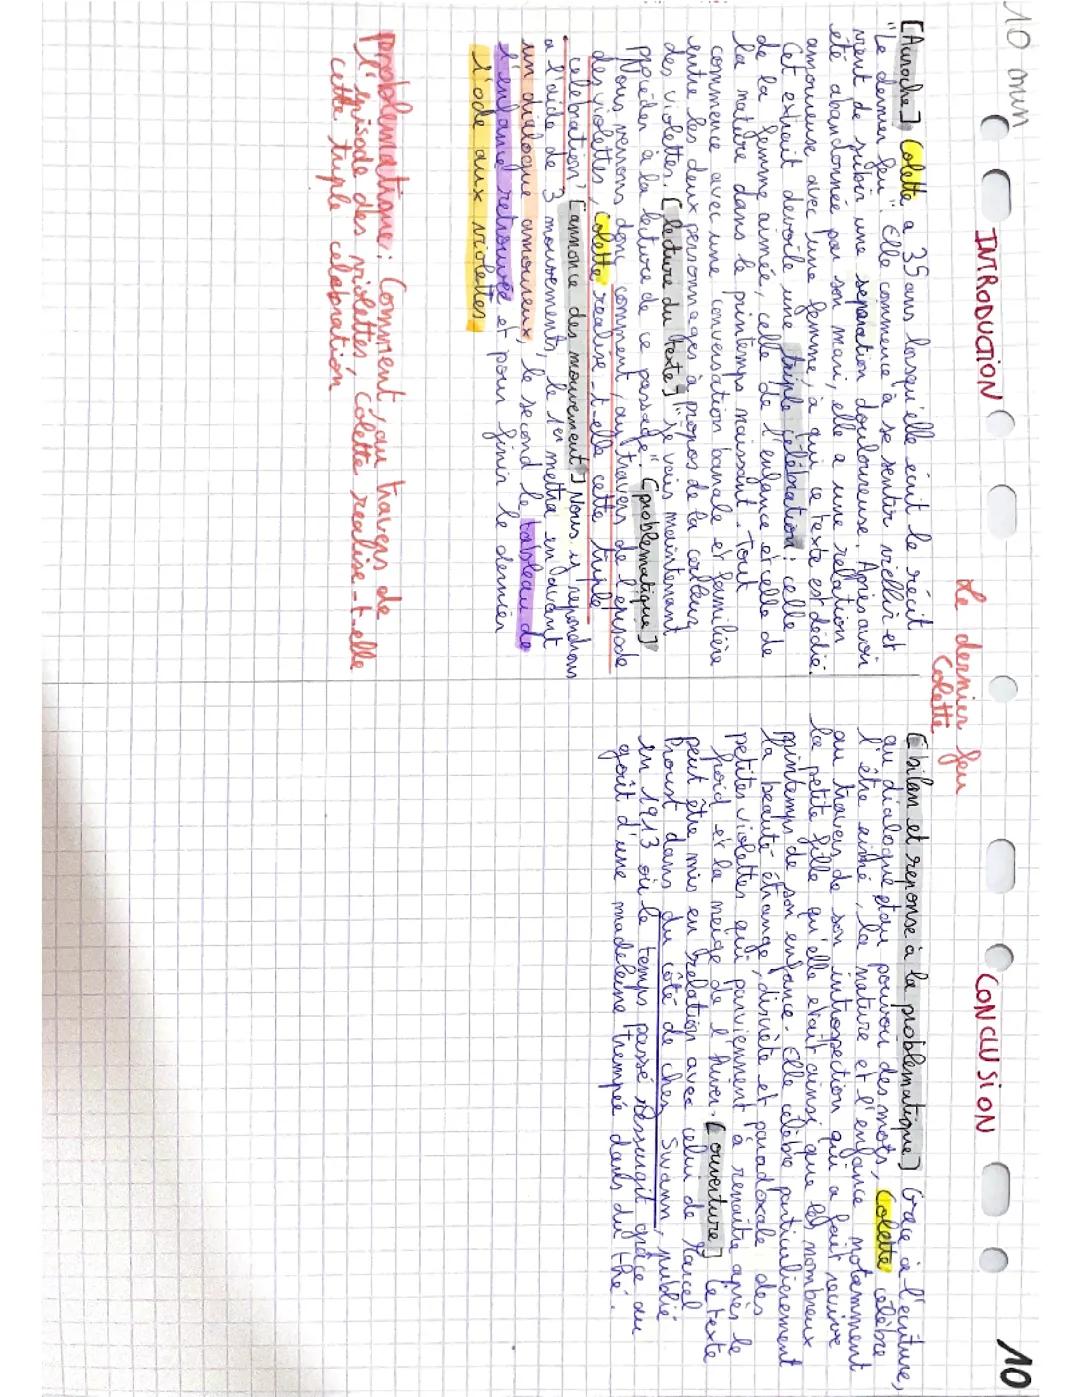 10 min
INTRODUCTION
Le dernier feu
Colette
CONCLUSION
10
[Accroche] Colette a 35 ans lorsqu'elle écrit le récit
"Le dernier feu". Elle commence à se sentir vieillir et
vient de subir une séparation douloureuse. Après avoir
été abandonnée par son mari, elle a une relation
amoureuse avec une femme, à qui ce texte est dédié.
Cet extrait dévoile une triple célébration : celle
de la femme aimée, celle de l'enfance et celle de
la nature dans le printemps naissant. Tout
commence avec une conversation banale et familière
entre les deux personnages à propos de la couleur
des violettes. [lecture du texte] "je vais maintenant
procéder à la lecture de ce passage". [problematique]
Nous verrons donc comment, au travers de l'episode
des violettes, Colette réalise-t-elle cette triple
célébration? [annonce des mouvement] Nous y repondrons
a l'aide de 3 mouvements, le 1er mettra en avant
un dialogue amoureux, le second le tableau de
l'enfance retrouvée et pour finir le dernier
l'ode aux violettes.
Problématique : Comment, au travers de
l'épisode des violettes, Colette réalise-t-elle
cette triple célébration
[bilan et reponse à la problematique] Grâce à l'écriture,
au dialogue et au pouvoir des mots, Colette célèbre
l'être aimé, la nature et l'enfance notamment
au travers de son introspection qui a fait revivre
la petite fille qu'elle était ainsi que les nombreux
printemps de son enfance. Elle célèbre particulièrement
la beauté étrange, discrète et paradoxale des
petites violettes qui parviennent à renaître après le
froid et la neige de l'hiver. [ouverture] Le texte
peut être mis en relation avec celui de Marcel
Proust dans du côté de chez Swann, publié
en 1913 où le temps passé ressurgit grâce au
goût d'une madeleine trempée dans du thé.